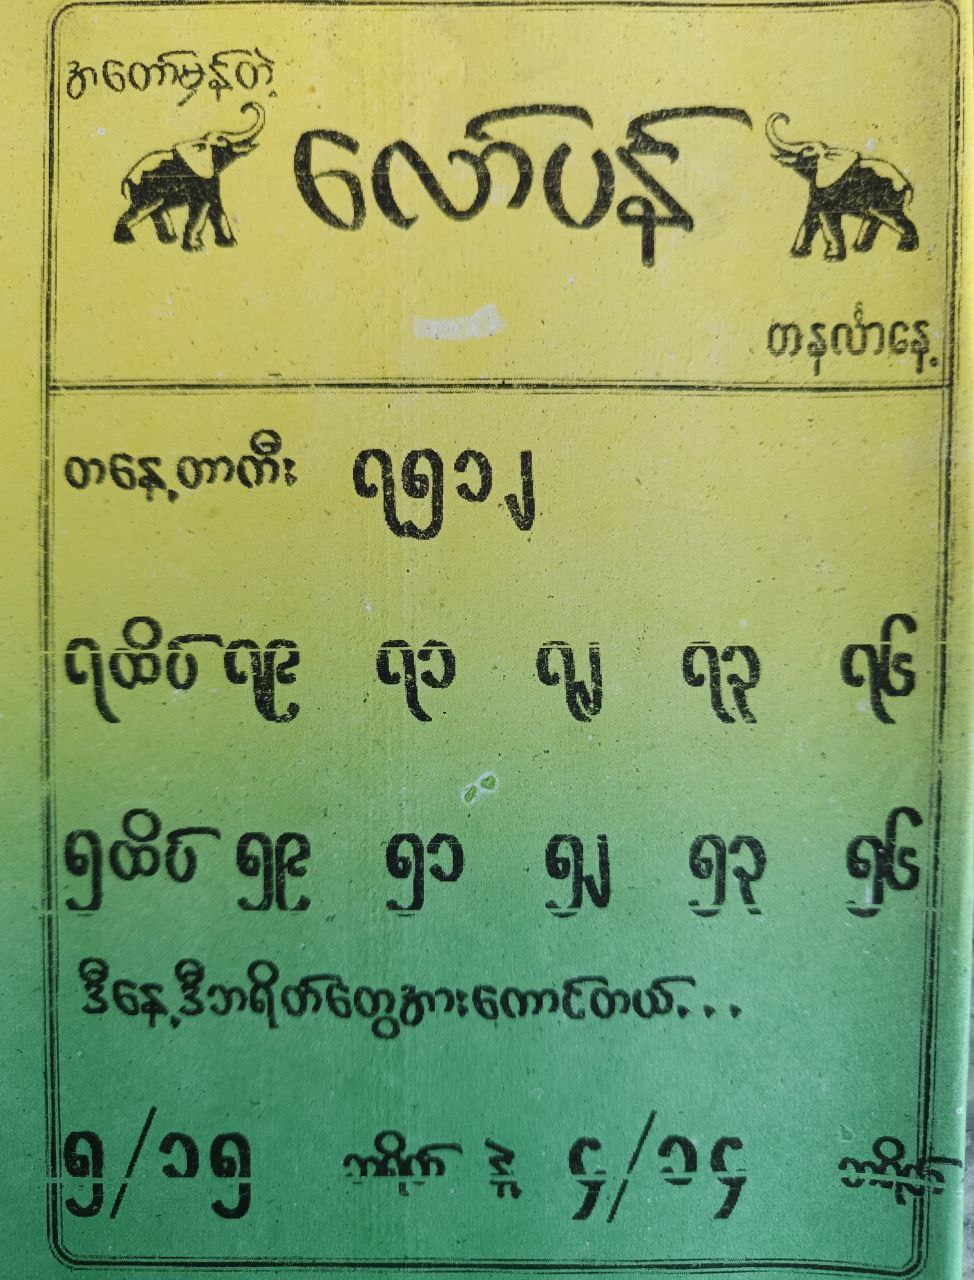 အတော်မှန်တဲ့
လော်ပန်
တနင်္လာနေ့
တနေ့တာကီး ၇၅၁၂
၇ထိပ် ၇၉ ၇၁ ၇၂ ၇၃ ၇၆
၅ထိပ် ၅၉ ၅၁ ၅၂ ၅၃ ၅၆
ဒီနေ့ဒီဘရိတ်တွေအားကောင်တယ်...
၅/၁၅ ဘရိတ် နဲ့ ၄/၁၄ ဘရိတ်